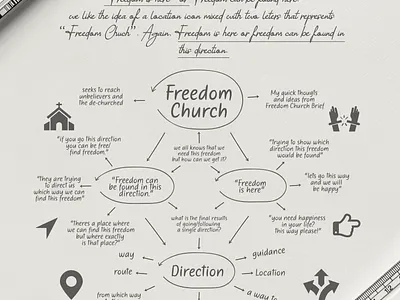 "Freedom is here" or "Freedom can be found here"
we like the idea of a location icon mixed with two leters that represents
"Freedom Chuch". Again. Freedom is here or freedom can be found in
this direction.
seeks to reach
unbelievers and
the de-churched
Freedom
Church
My quick thougts
and ideas from
Freedom Church Brief
"if you go this direction
you can be free/
find freedom."
we all knows that we
need this freedom
but how can we get it?
"Trying to show which
direction this freedom
would be found"
"They are trying
to direct us
which way we can
find this freedom"
"Freedom can
be found in this
direction."
"Freedom
is here"
"lets go this way
and we will
be happy"
"There's a place where
we can find this freedom
but where exactly
is that place?"
what is the final results
of going/following
a single direction?
"you need happiness
in your life?
This way please!"
way
guidance
route
Direction
Location
from which way
a way to
12